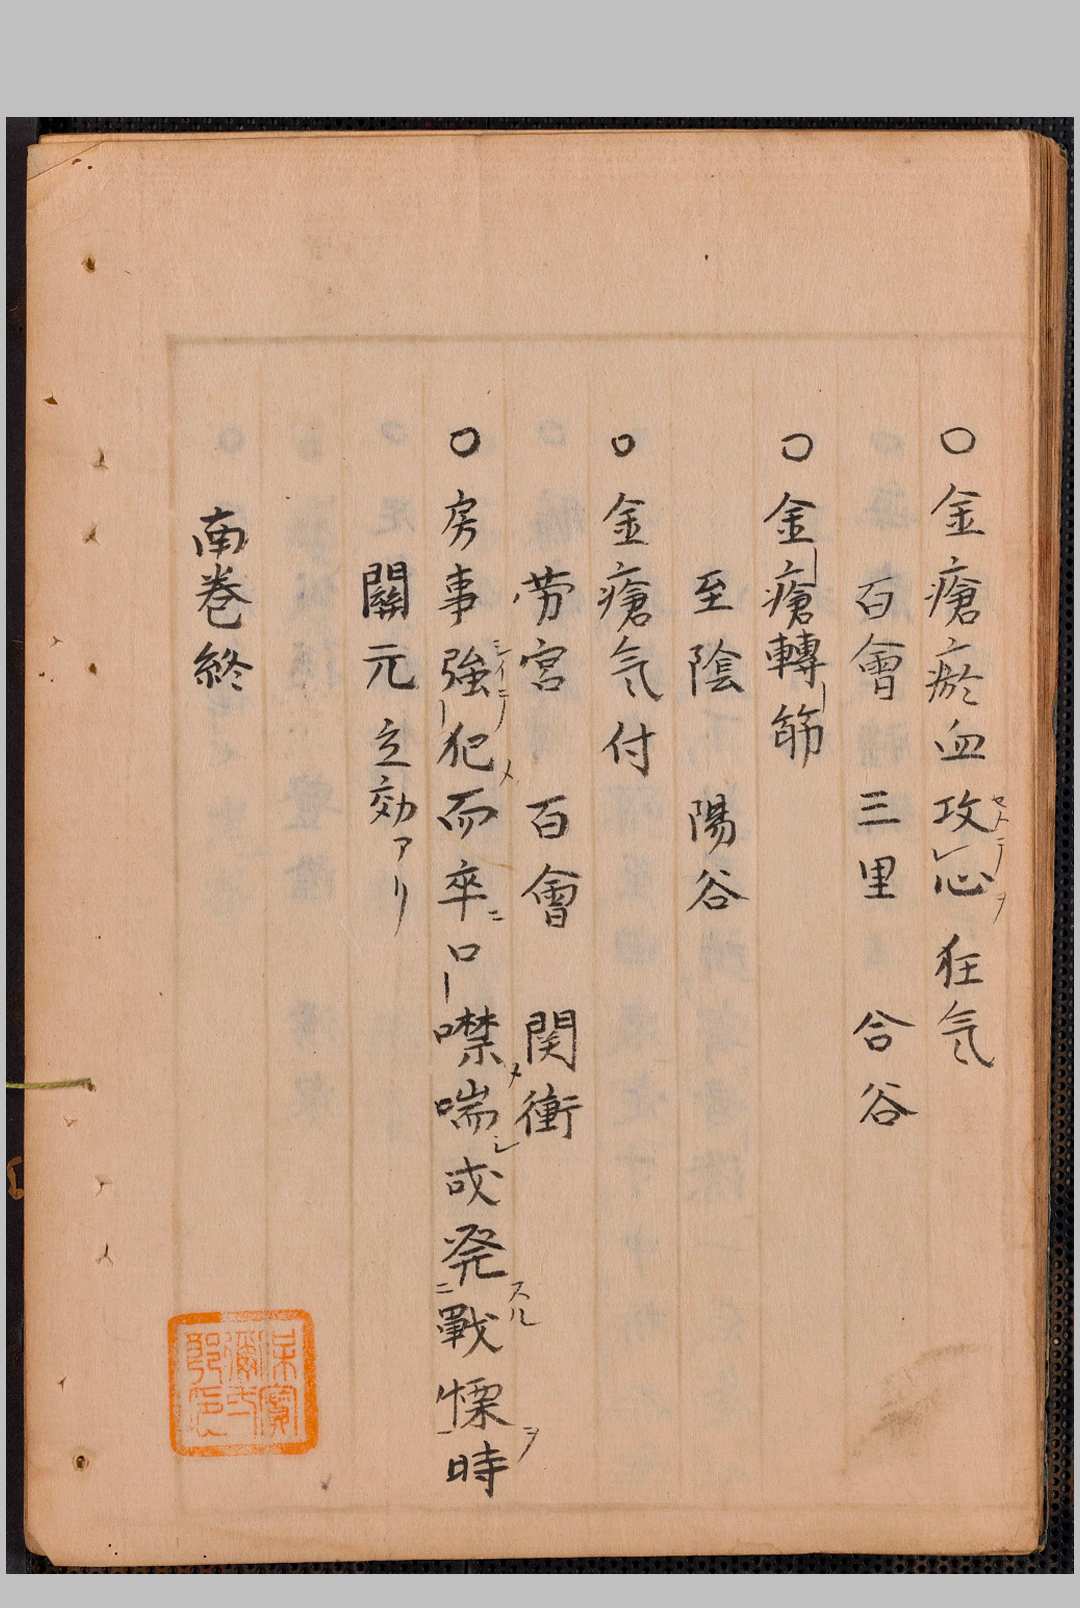 〇金瘡瘀血攻心狂気
百會 三里 合谷
〇金瘡轉筋
至陰 陽谷
〇金瘡气付
労宮 百會 関衝
〇房事強犯而卒口噤喘或発戰慄時
關元立効アリ
南巻終